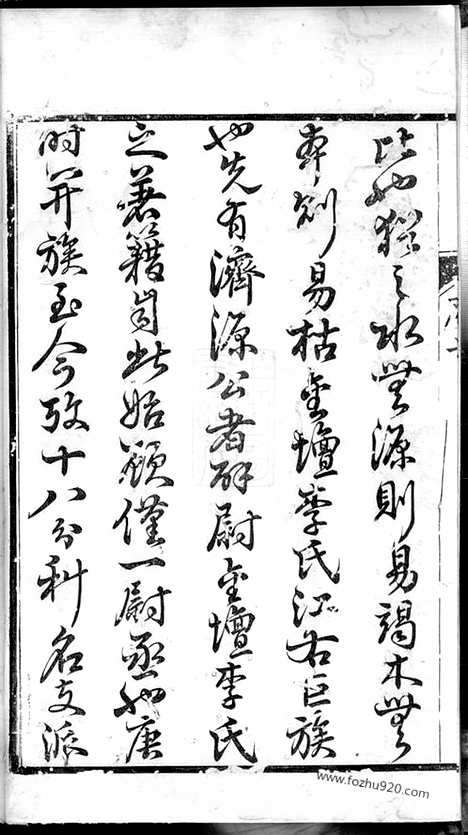 此也猶之水無源則易竭木無
本則易枯金壇李氏江右巨族
也先有濟源公者研尉金壇李氏
之著籍自此始顧僅一尉丞也唐
時并族至今攷十八分科名支派
www.fozhu920.com